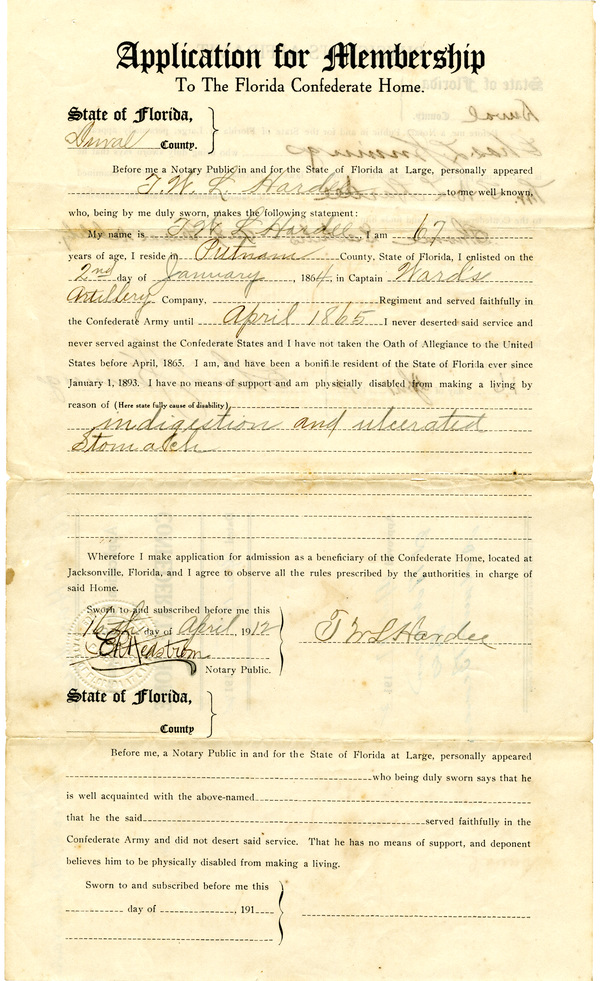 Application for Membership
To The Florida Confederate Home.
State of Florida,
Duval County.
Before me a Notary Public in and for the State of Florida at Large, personally appeared
T. W. L. Hardee to me well known,
who, being by me duly sworn, makes the following statement:
My name is T. W. L. Hardee, I am 67
years of age, I reside in Putnam County, State of Florida, I enlisted on the
2nd day of January, 1864, in Captain Ward's
Artillery Company, Regiment and served faithfully in
the Confederate Army until April 1865 I never deserted said service and
never served against the Confederate States and I have not taken the Oath of Allegiance to the United
States before April, 1865. I am, and have been a bonifile resident of the State of Florida ever since
January 1, 1893. I have no means of support and am physicially disabled from making a living by
reason of (Here state fully cause of disability)
indigestion and ulcerated
Stomatch
Wherefore I make application for admission as a beneficiary of the Confederate Home, located at
Jacksonville, Florida, and I agree to observe all the rules prescribed by the authorities in charge of
said Home.
Sworn to and subscribed before me this
16th day of April, 1912
T W L Hardee
Hedstrom
Notary Public.
State of Florida,
County
Before me, a Notary Public in and for the State of Florida at Large, personally appeared
who being duly sworn says that he
is well acquainted with the above-named
that he the said served faithfully in the
Confederate Army and did not desert said service. That he has no means of support, and deponent
believes him to be physically disabled from making a living.
Sworn to and subscribed before me this
day of , 191